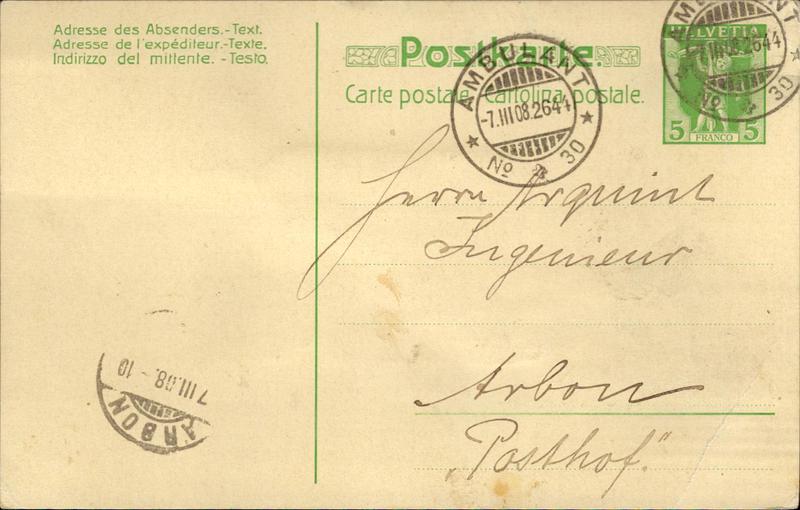 Adresse des Absenders.-Text.
Adresse de l'expéditeur.-Texte.
Indirizzo del mittente. -Testo.
Postkarte.
Carte postale. Cartolina postale.
HELVETIA
5 FRANCO 5
AMBULANT
-7.III 08.2644
No 30
AMBULANT
-7.III 08.2644
No 30
Herrn Arquint
Ingenieur
Arbon
„Posthof."
7 III.08 - 10
ARBON